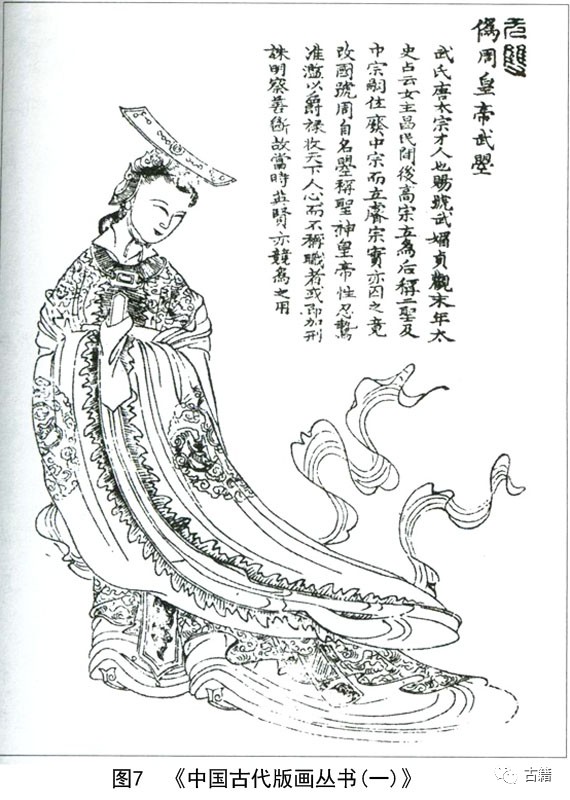 无雙
偽周皇帝武曌
武氏唐太宗才人也賜號武媚貞觀末年太
史占云女主昌民间後高宗立為后稱二聖及
中宗嗣位廢中宗而立睿宗實亦囚之竟
改國號周自名曌稱聖神皇帝性忍鷙
淮濫以爵祿收天下人心而不稱職者或即加刑
誅明察善断故當時英賢亦競為之用
图7 《中国古代版画丛书(一)》
古籍